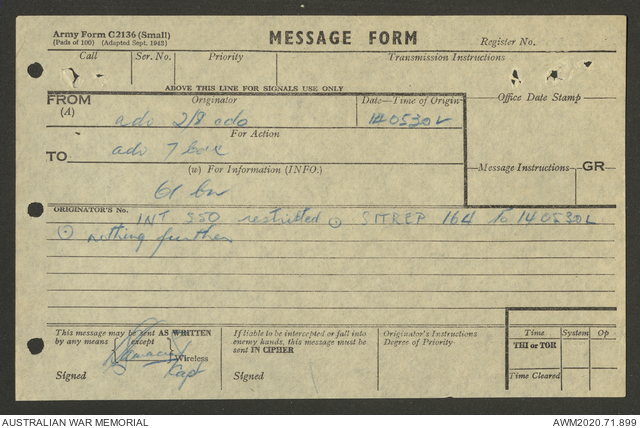 Army Form C2136 (Small)
(Pads of 100) (Adapted Sept. 1942)
MESSAGE FORM
Register No.
Call Ser. No. Priority Transmission Instructions
ABOVE THIS LINE FOR SIGNALS USE ONLY
FROM Originator Date—Time of Origin Office Date Stamp
(A) adv 2/8 140530L
For Action
TO adv 7 bde
(w) For Information (INFO.) Message Instructions GR
61 bn
ORIGINATOR'S No. INT 550 restricted SITREP 164 to 140530L
nothing further
This message may be sent AS WRITTEN
by any means except
Wireless
Signed Capt
If liable to be intercepted or fall into
enemy hands, this message must be
sent IN CIPHER
Signed
Originator's Instructions
Degree of Priority
Time System Op
THI or TOR
Time Cleared
AUSTRALIAN WAR MEMORIAL
AWM2020.71.899